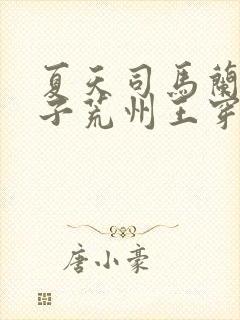 夏天司馬蘭
子荒州王穿
唐小豪